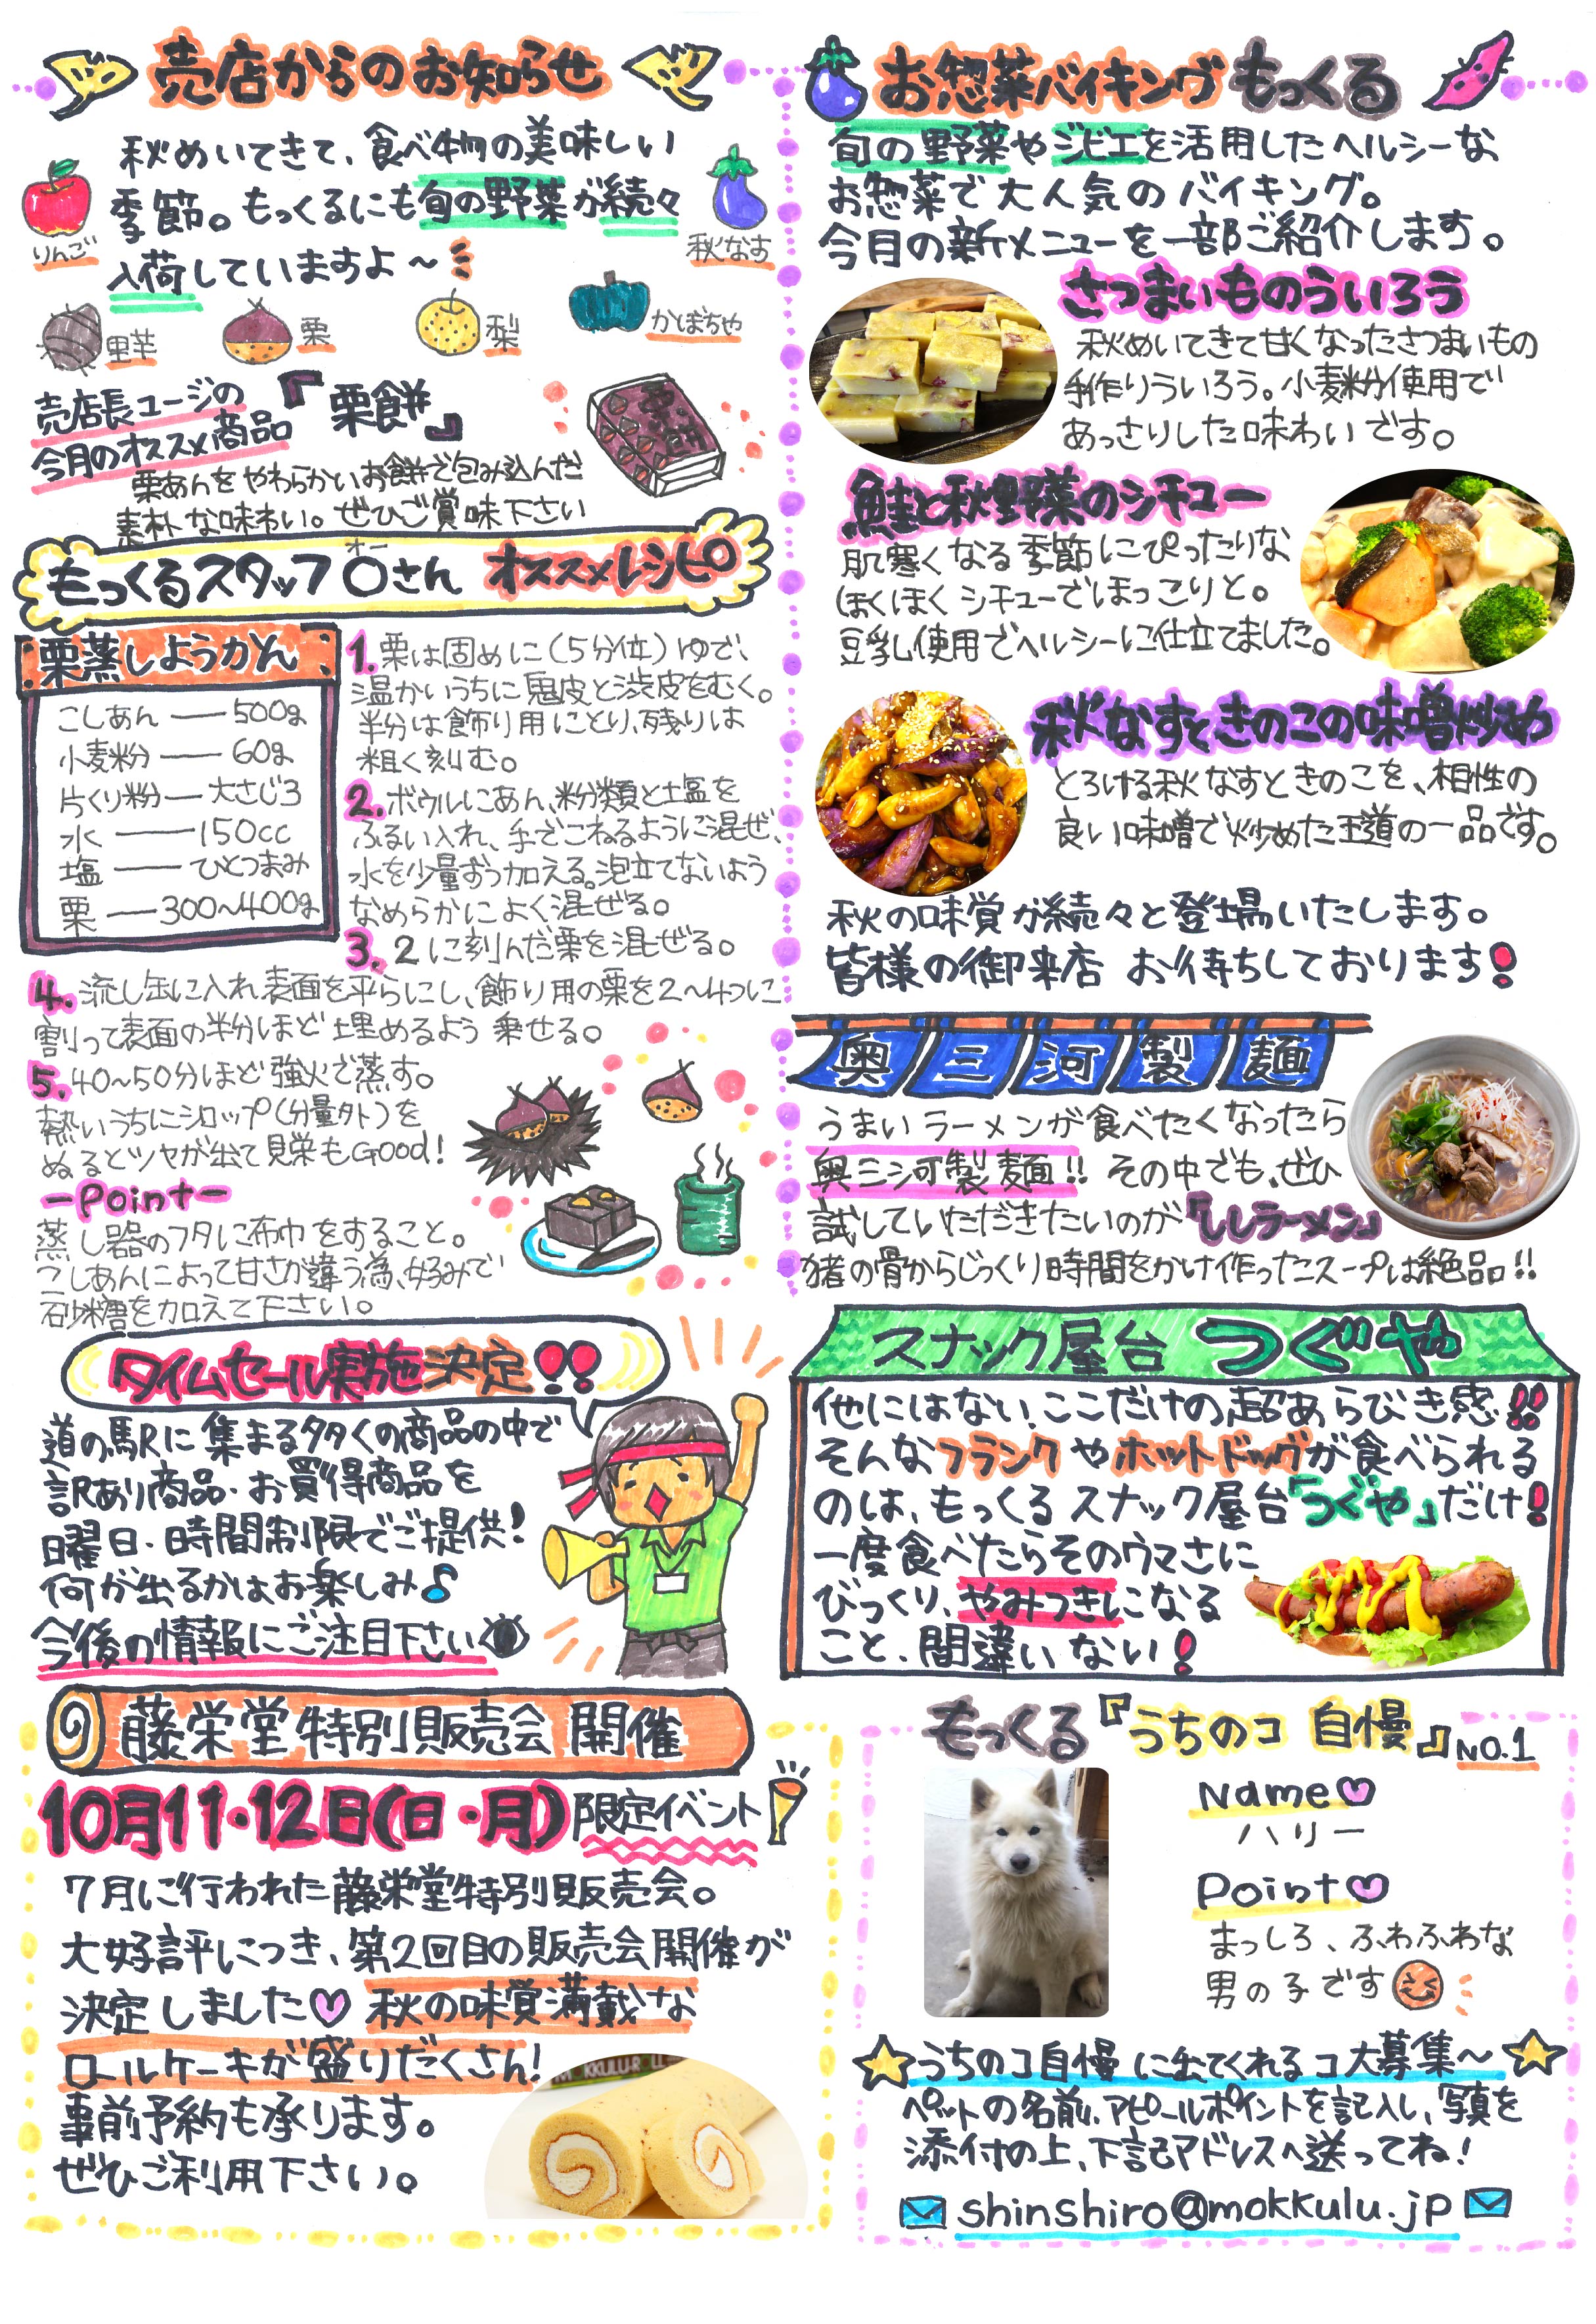 売店からのお知らせ
秋めいてきて、食べ物の美味しい
季節。もっくるにも旬の野菜が続々
入荷していますよ〜
りんご
秋なす
里芋
栗
梨
かぼちゃ
売店長ユージの
今月のオススメ商品
『栗餅』
栗餅
栗あんをやわらかいお餅で包み込んだ
素朴な味わい。ぜひご賞味下さい
もっくるスタッフOさん オススメレシピ
オー
栗蒸しようかん
こしあん ― 500g
小麦粉 ― 60g
片くり粉 ― 大さじ3
水 ― 150cc
塩 ― ひとつまみ
栗 ― 300〜400g
1. 栗は固めに(5分位)ゆで、
温かいうちに鬼皮と渋皮をむく。
半分は飾り用にとり、残りは
粗く刻む。
2. ボウルにあん、粉類と塩を
ふるい入れ、手でこねるように混ぜ、
水を少量ずつ加える。泡立てないよう
なめらかによく混ぜる。
3. 2に刻んだ栗を混ぜる。
4. 流し缶に入れ表面を平らにし、飾り用の栗を2〜4つに
割って表面の半分ほど埋めるよう乗せる。
5. 40〜50分ほど強火で蒸す。
熱いうちにシロップ(分量外)を
ぬるとツヤが出て見栄もGood!
ーPointー
蒸し器のフタに布巾をすること。
こしあんによって甘さが違う為、好みで
砂糖を加えて下さい。
タイムセール実施決定!!
道の駅に集まる多くの商品の中で
訳あり商品・お買得商品を
曜日・時間制限でご提供!
何が出るかはお楽しみ♪
今後の情報にご注目下さい
藤栄堂特別販売会開催
10月11・12日(日・月)限定イベント
7月に行われた藤栄堂特別販売会。
大好評につき、第2回目の販売会開催が
決定しました♡秋の味覚満載な
ロールケーキが盛りだくさん!
事前予約も承ります。
ぜひご利用下さい。
お惣菜バイキングもっくる
旬の野菜やジビエを活用したヘルシーな
お惣菜で大人気のバイキング。
今月の新メニューを一部ご紹介します。
さつまいものういろう
秋めいてきて甘くなったさつまいもの
手作りういろう。小麦粉使用で
あっさりした味わいです。
鮭と秋野菜のシチュー
肌寒くなる季節にぴったりな
ほくほくシチューでほっこりと。
豆乳使用でヘルシーに仕立てました。
秋なすときのこの味噌炒め
とろける秋なすときのこを、相性の
良い味噌で炒めた王道の一品です。
秋の味覚が続々と登場いたします。
皆様の御来店 お待ちしております!
奥三河製麺
うまいラーメンが食べたくなったら
奥三河製麺!! その中でも、ぜひ
試していただきたいのが『ししラーメン』
猪の骨からじっくり時間をかけ作ったスープは絶品!!
スナック屋台 つぐや
他にはない、ここだけの超あらびき感!!
そんなフランクやホットドッグが食べられる
のは、もっくるスナック屋台「つぐや」だけ!
一度食べたらそのウマさに
びっくり、やみつきになる
こと、間違いない!
もっくる『うちのコ自慢』NO.1
Name♡
ハリー
Point♡
まっしろ、ふわふわな
男の子です
うちのコ自慢に出てくれるコ大募集〜
ペットの名前、アピールポイントを記入し、写真を
添付の上、下記アドレスへ送ってね!
shinshiro@mokkulu.jp